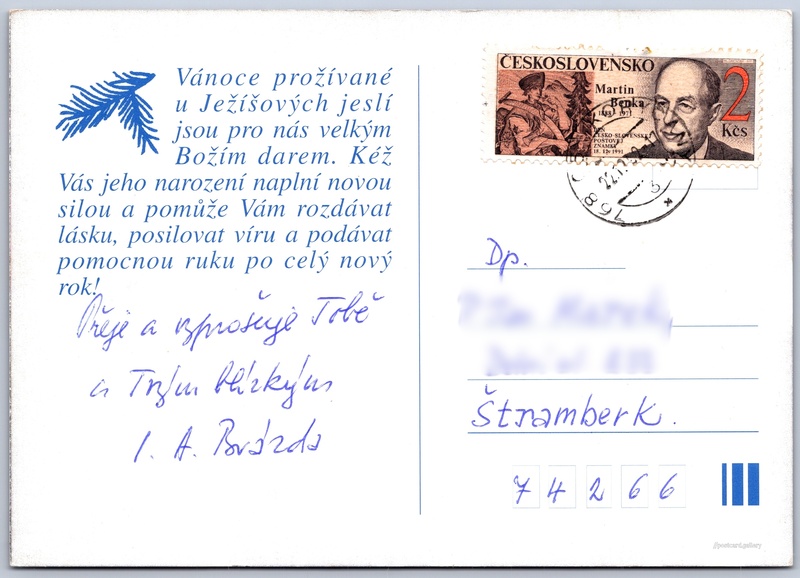 Vánoce prožívané
u Ježíšových jeslí
jsou pro nás velkým
Božím darem. Kéž
Vás jeho narození naplní novou
silou a pomůže Vám rozdávat
lásku, posilovat víru a podávat
pomocnou ruku po celý nový
rok!
Přeje a vyprošuje Tobě
a Tvým blízkým
A. Brázda
ČESKOSLOVENSKO
Martin
Benka
1888 - 1971
ČESKO-SLOVENSKEJ
POŠTOVEJ
ZNÁMKY
18. 12. 1991
2
Kčs
168
Dp.
Štramberk.
74266